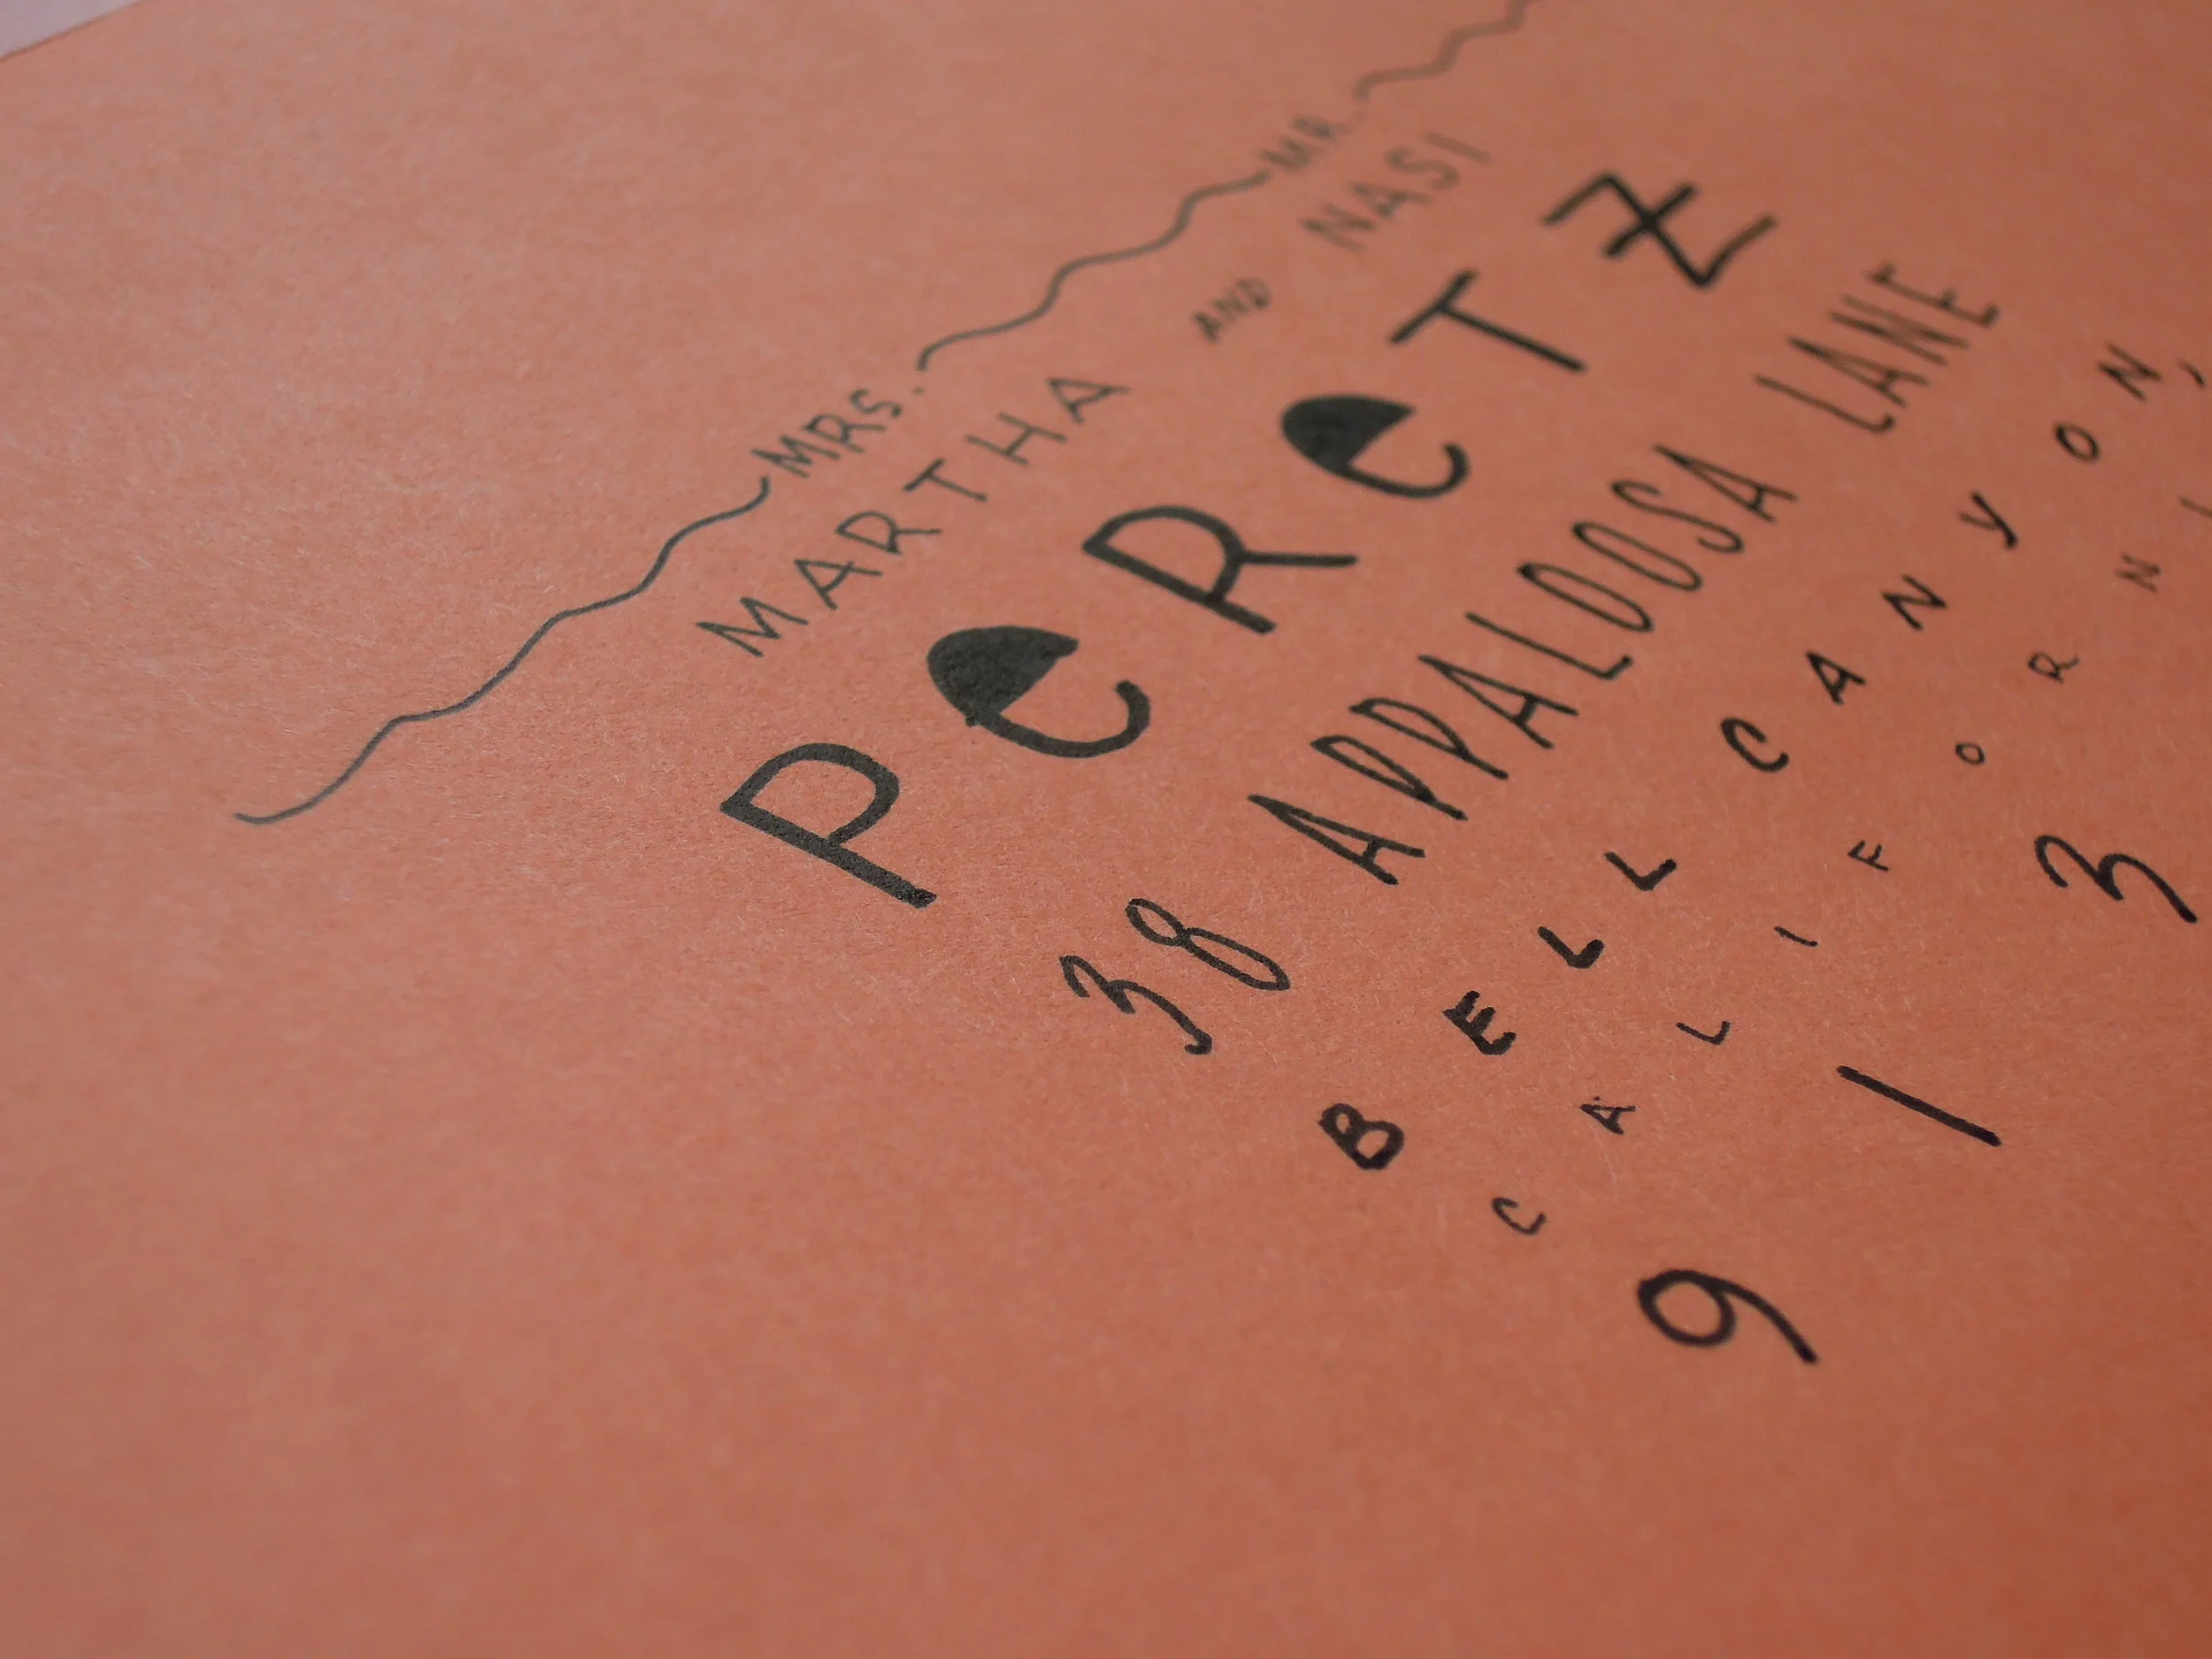 MRS. MR.
MARTHA AND NASI
PeReTZ
38 APPALOOSA LANE
BELL CANYON,
CALIFORNI
913